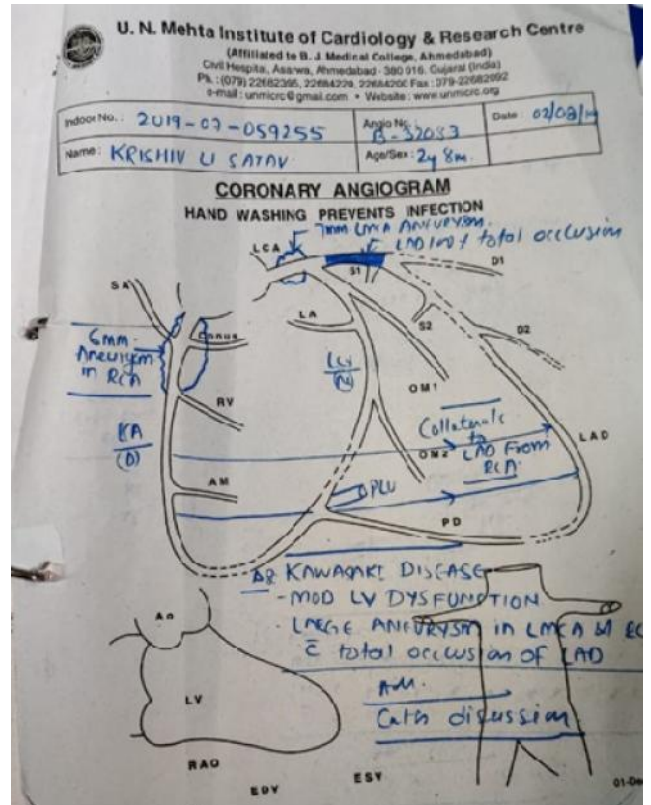 U. N. Mehta Institute of Cardiology & Research Centre
(Affiliated to B. J Medical College, Ahmedabad)
Civil Hospital, Asarwa, Ahmedabad - 380 016. Gujarat (India)
Ph. : (079) 22682395, 22684220, 22684200 Fax : 079-22682092
e-mail : unmicrc@gmail.com • Website : www.unmicrc.org
Indoor No. : 2019-07-059255
Angio No. B-32053
Date 02/08/19
Name : KRISHIV U SATAV
Age/Sex : 2y 8m.
CORONARY ANGIOGRAM
HAND WASHING PREVENTS INFECTION
7mm LMCA ANEURYSM.
LCA
LAD total occlusion
S1
D1
SA
LA
S2
D2
6mm
Aneurysm
in RCA
Conus
LCx
(N)
OM1
RV
Collaterals
to
LAD From
RCA
OM2
LAD
(D)
AM
PLV
PD
KAWASAKI DISEASE
- MOD LV DYSFUNCTION
- LARGE ANEURYSM in LMCA
c̄ total occlusion OF LAD
Ao
LV
Adv.
Cath discussion
RAO
EDV
ESV